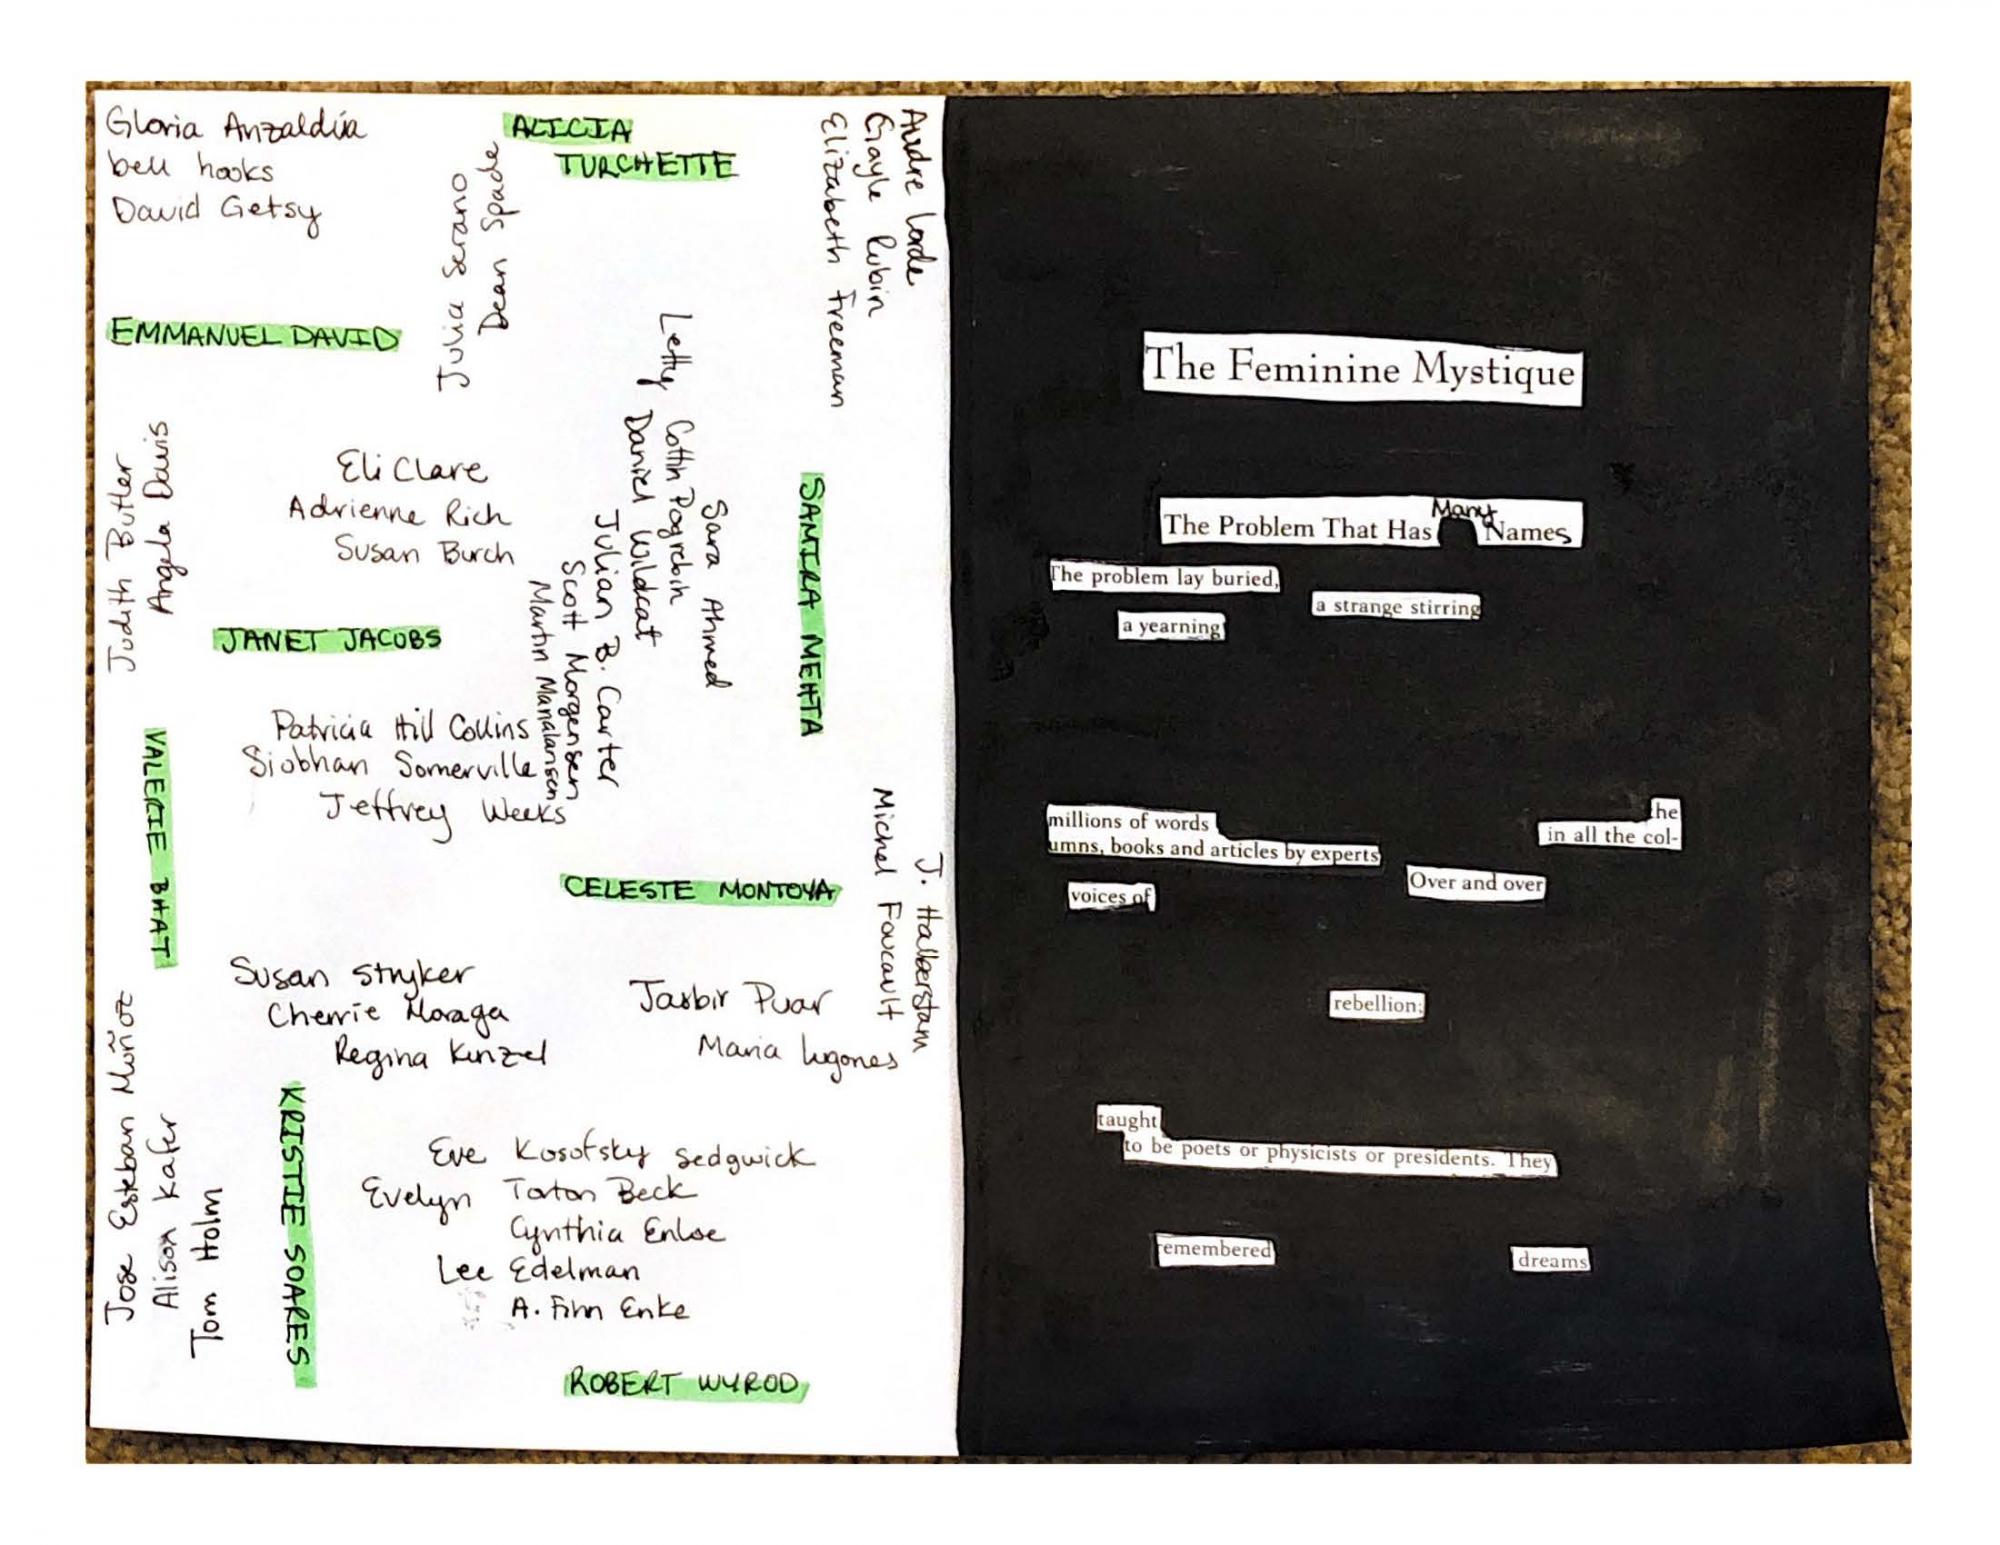 Gloria Anzaldúa
bell hooks
David Getsy
ALICIA
TURCHETTE
Julia Serano
Dean Spade
Audre Lorde
Gayle Rubin
Elizabeth Freeman
EMMANUEL DAVID
Judith Butler
Angela Davis
Eli Clare
Adrienne Rich
Susan Burch
Letty Cottin Pogrebin
Daniel Wildcat
Sara Ahmed
Julian B. Carter
Scott Morgensen
Martin Manalansen
SAMIRA MEHTA
JANET JACOBS
Patricia Hill Collins
Siobhan Somerville
Jeffrey Weeks
VALERIE BHAT
CELESTE MONTOYA
J. Halberstam
Michel Foucault
Susan Stryker
Cherrie Moraga
Regina Kunzel
Jasbir Puar
Maria Lugones
Jose Esteban Muñoz
Alison Kafer
Tom Holm
KRISTIE SOARES
Eve Kosofsky Sedgwick
Evelyn Torton Beck
Cynthia Enloe
Lee Edelman
A. Finn Enke
ROBERT WYROD
The Feminine Mystique
The Problem That Has Many Names
The problem lay buried,
a strange stirring
a yearning
he
millions of words
in all the col-
umns, books and articles by experts
Over and over
voices of
rebellion:
taught
to be poets or physicists or presidents. They
remembered
dreams